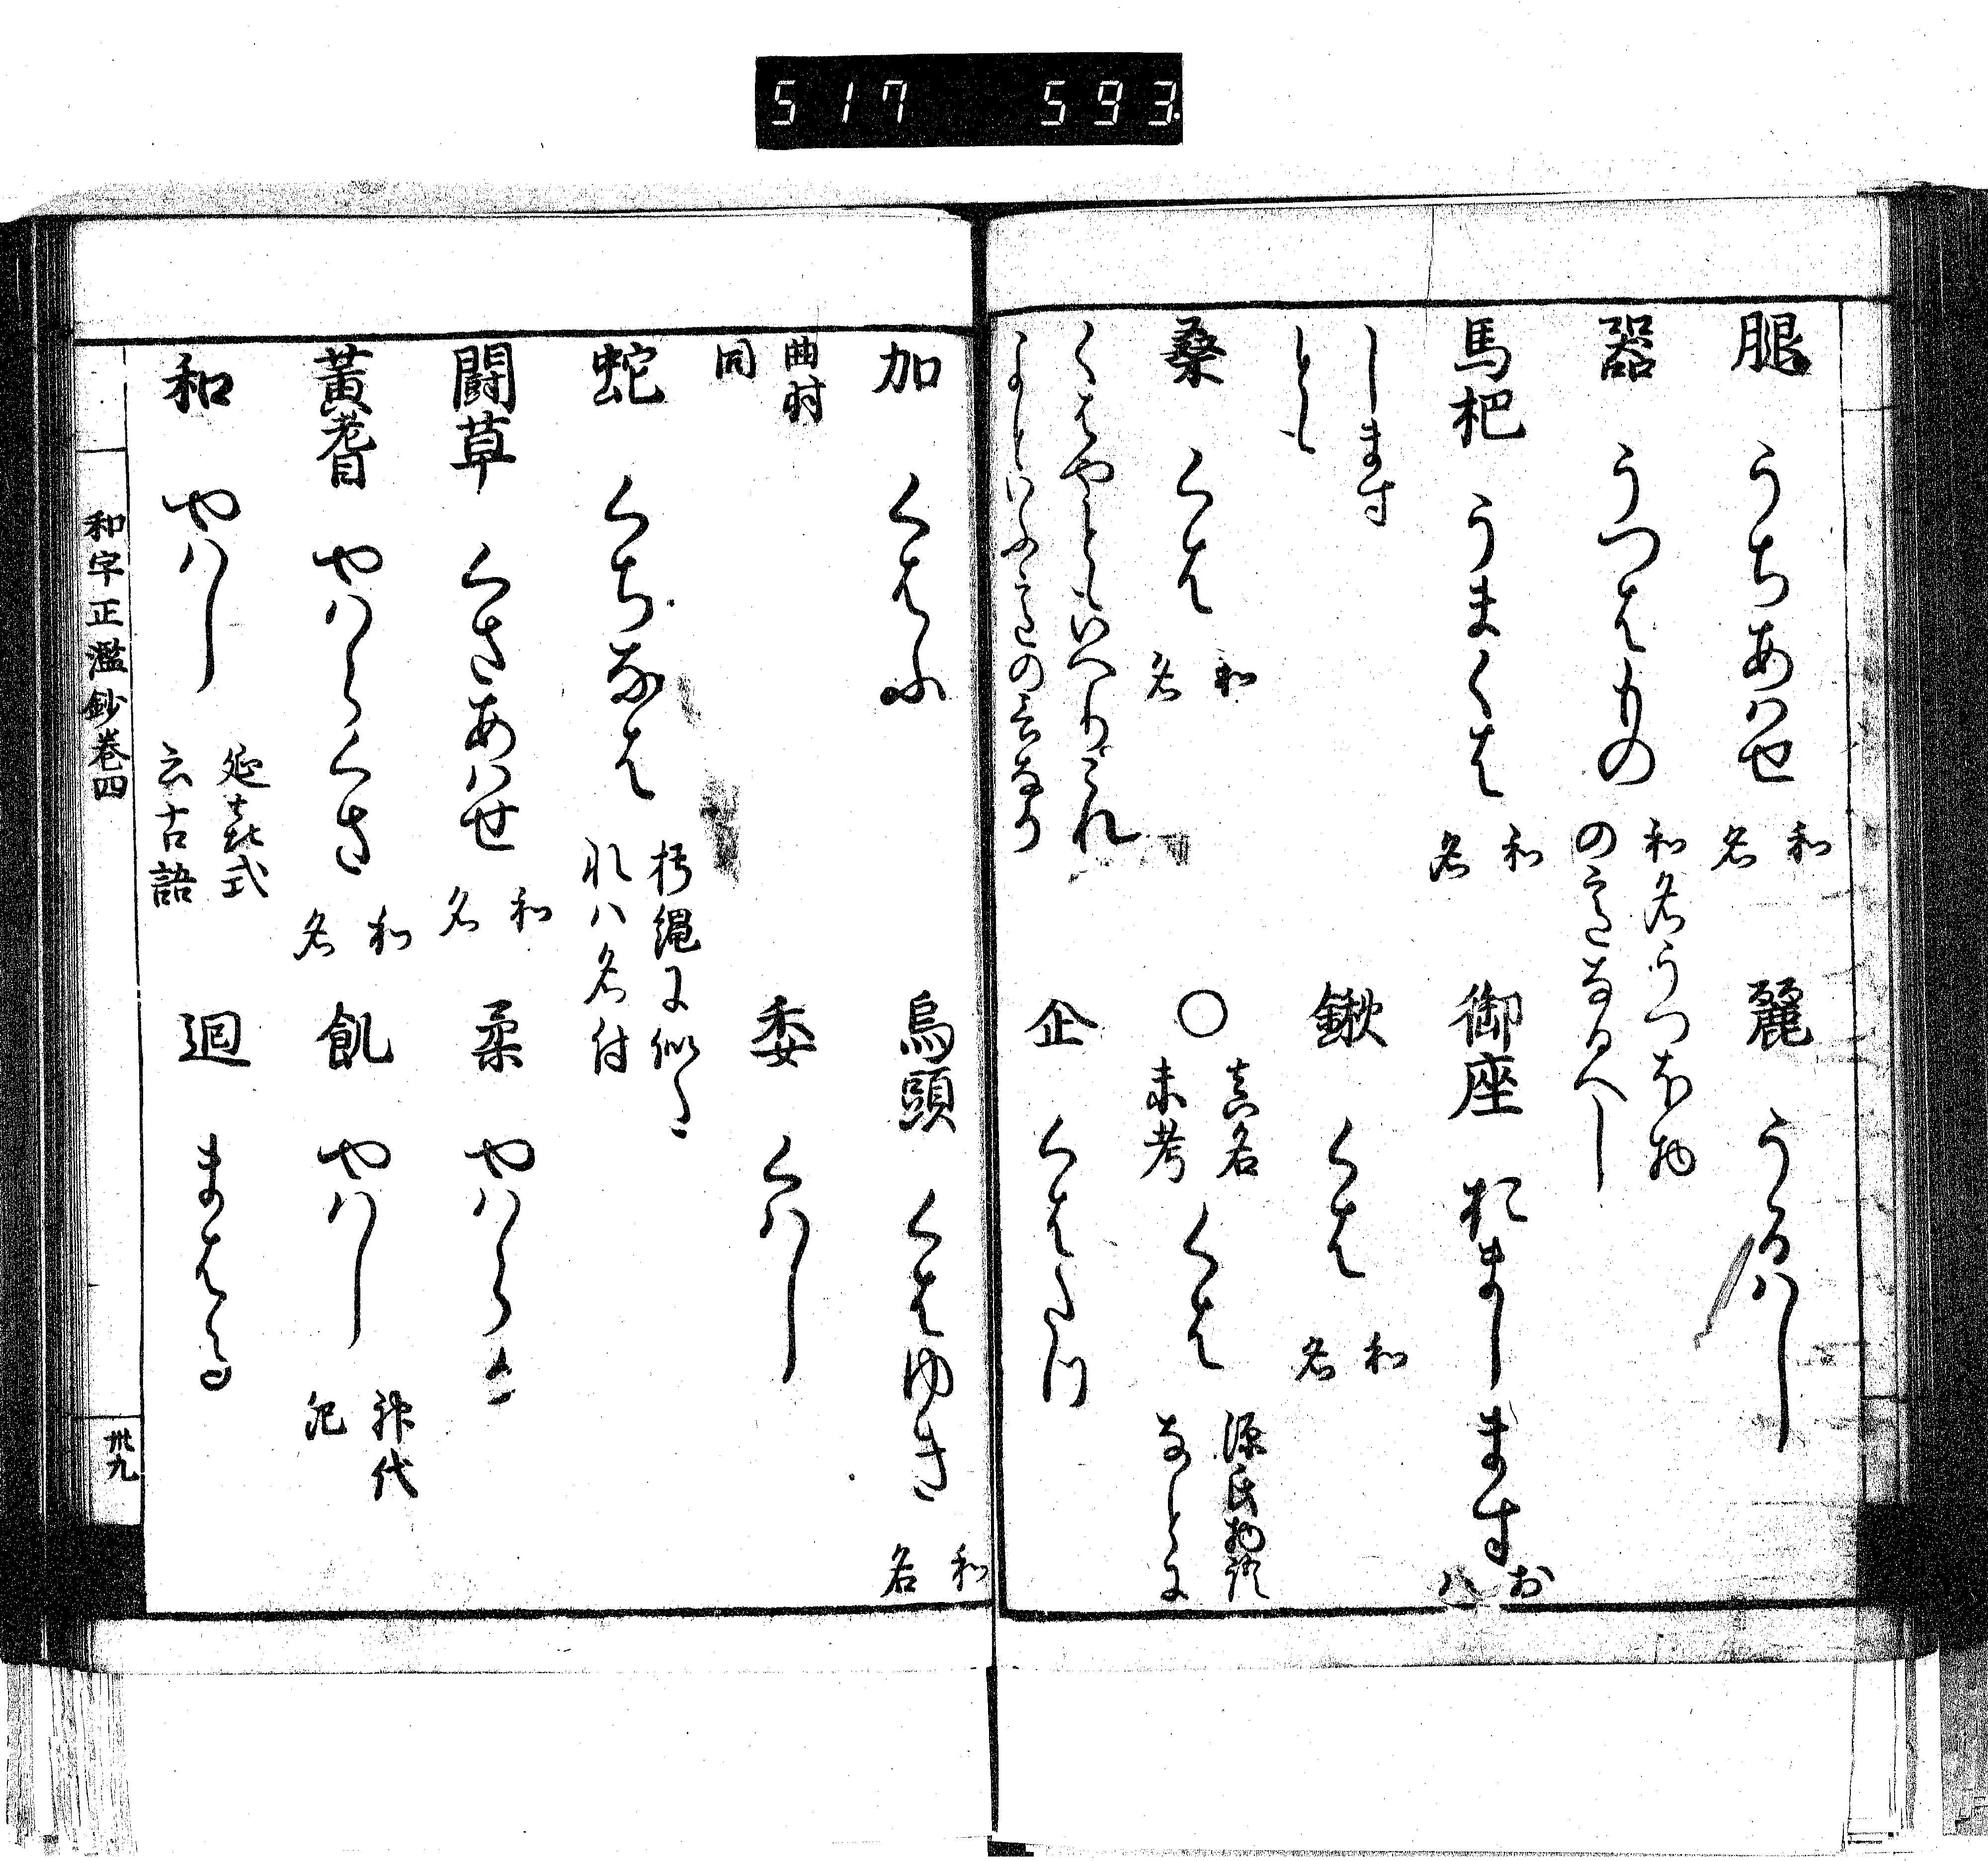 517 593
腿 うちあはせ 和名 麗 うるはし
器 うつはもの 和名うつは物の言なるへし
馬杷 うまくは 和名 御座 おまします おハ
しますとも 鍬 くは 和名
桑 くは 和名 ○ 真名未考 くは 源氏物語なとに
くはやともいへりこれ
よしといふ心の言なり 企 くはたつ
加 くはふ 烏頭 くはゆき 和名
曲尌同 委 くハし
蛇 くちなは 朽縄に似たれハ名付
闘草 くさあハせ 和名 柔 やハらか
黄耆 やハらくさ 和名 飢 やハし 神代紀
和 やハし 延喜式云古語 迴 まはる
和字正濫鈔巻四
卅九